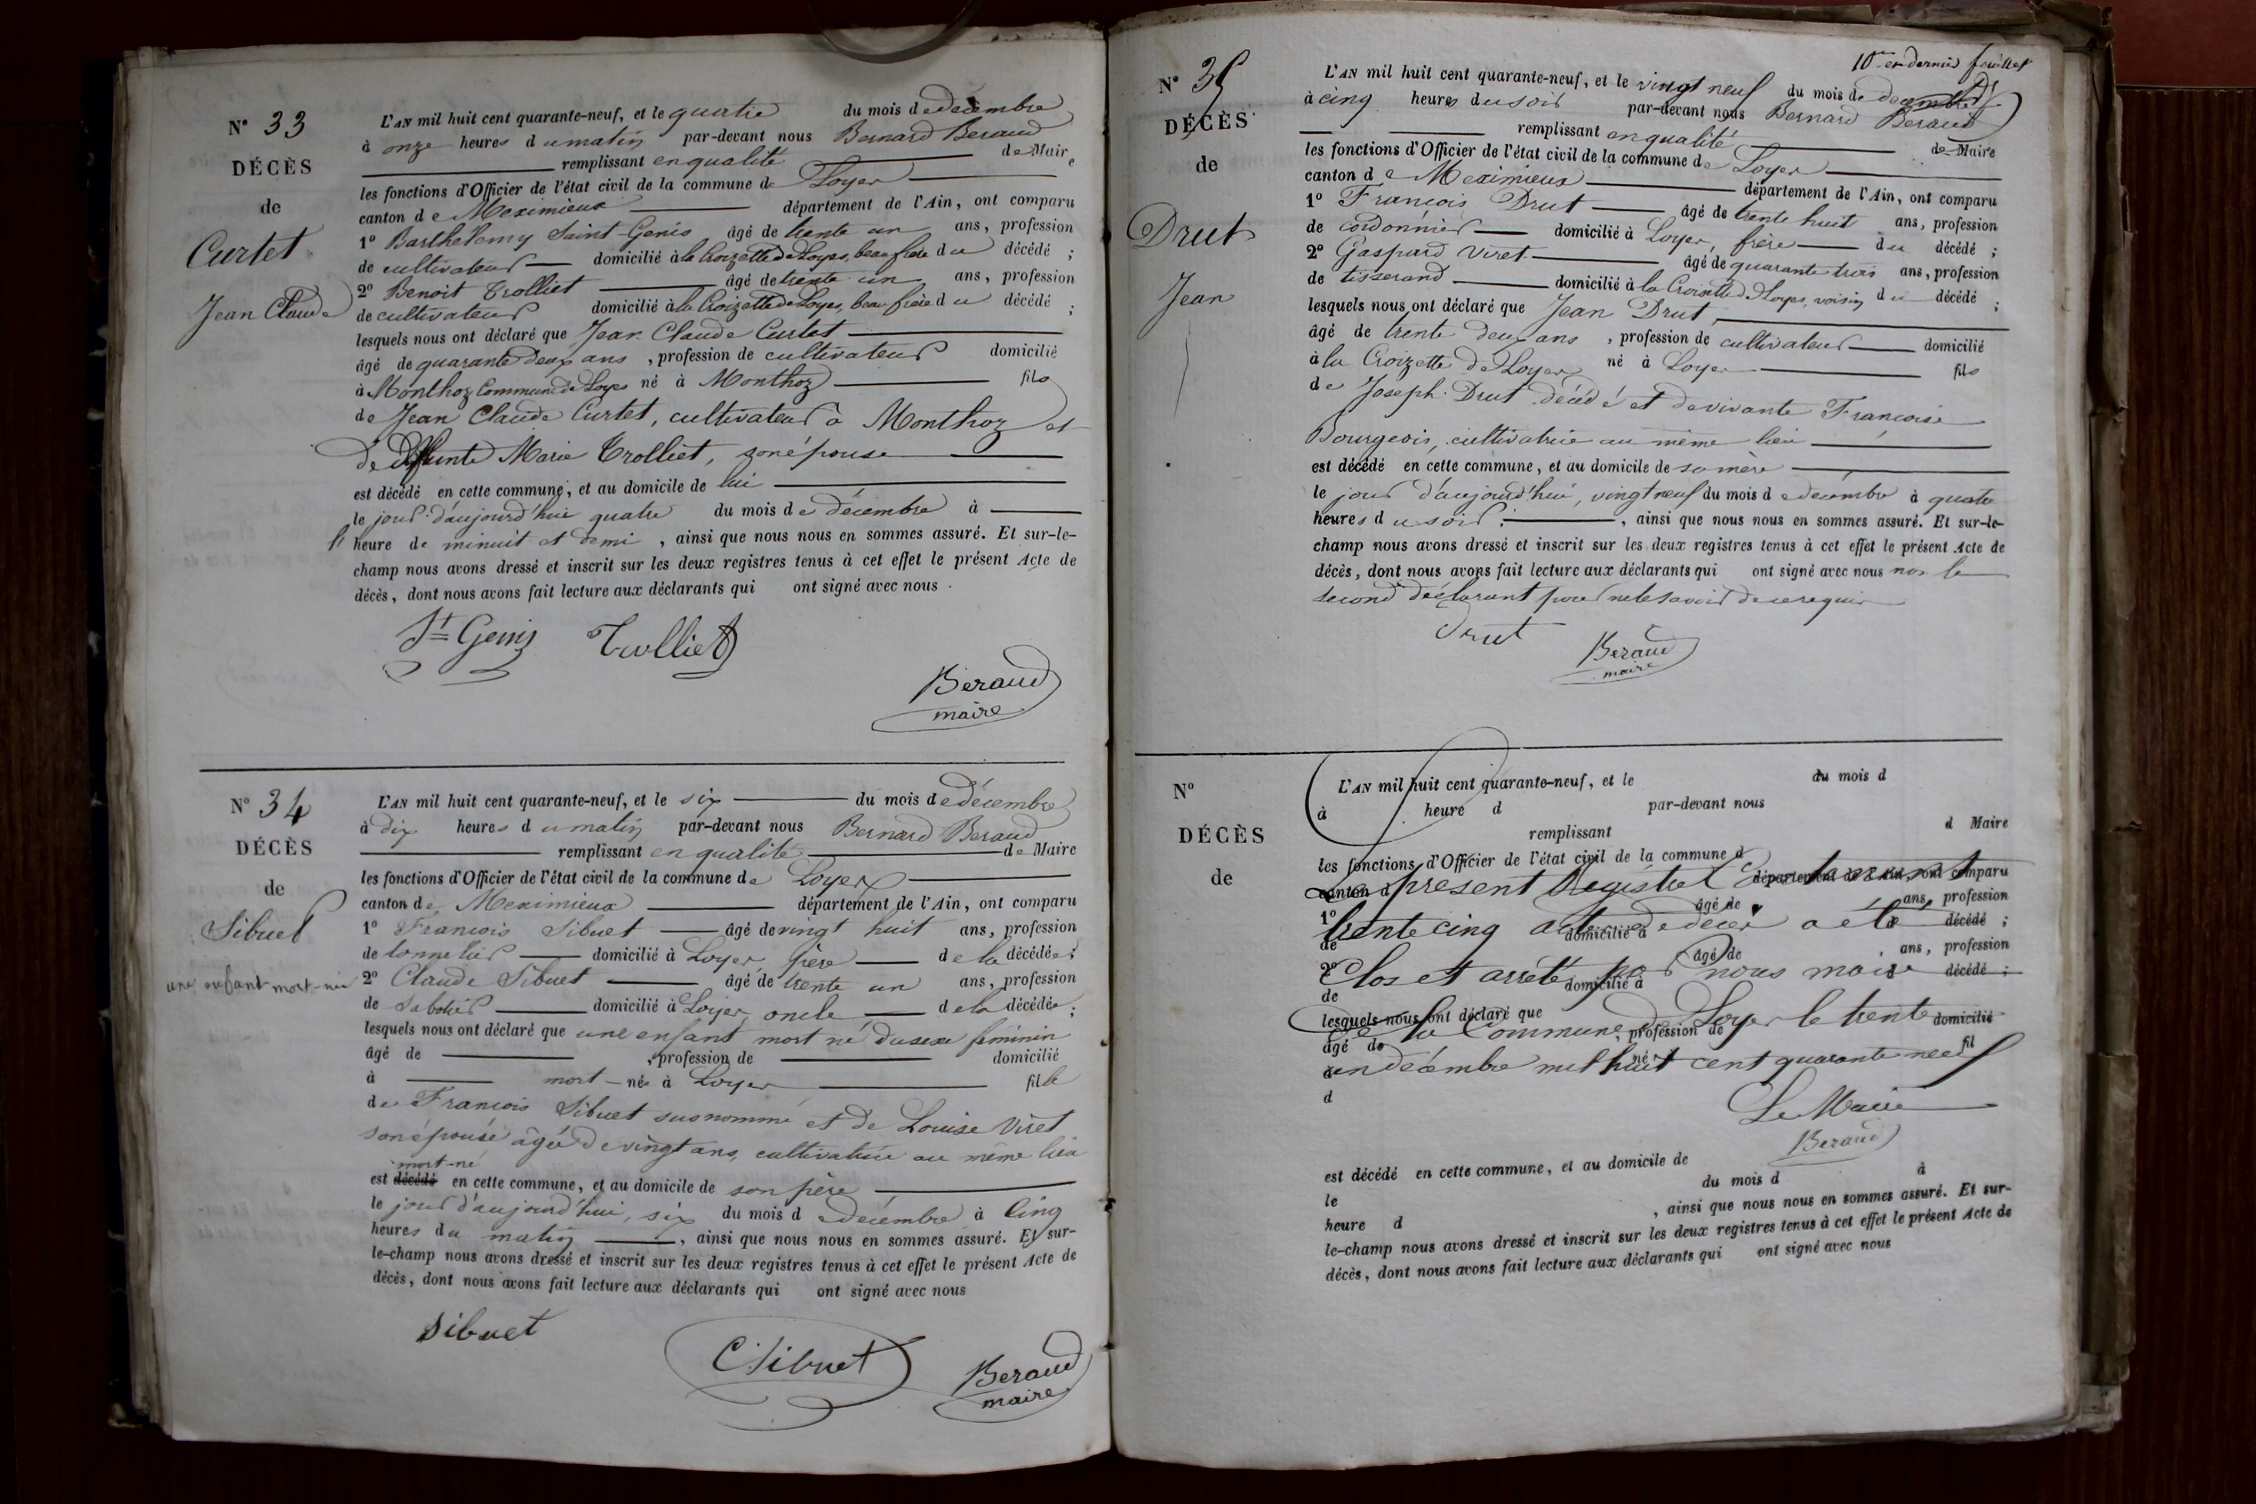 N° 33
DÉCÈS
de
Curtet
Jean Claude
L'AN mil huit cent quarante-neuf, et le quatre du mois de decembre
à onze heures du matin par-devant nous Bernard Beraud
remplissant en qualité de Maire
les fonctions d'Officier de l'état civil de la commune de Loyes
canton de Meximieux département de l'Ain, ont comparu
1° Barthelemy Saint-Genis âgé de trente un ans, profession
de cultivateur domicilié à la Croizette de Loyes, beau frère du décédé ;
2° Benoit Trolliet âgé de trente un ans, profession
de cultivateur domicilié à la Croizette de Loyes, beau frère du décédé ;
lesquels nous ont déclaré que Jean Claude Curtet
âgé de quarante deux ans, profession de cultivateur domicilié
à Monthoz Commune de Loyes né à Monthoz fils
de Jean Claude Curtet, cultivateur à Monthoz et
de deffunte Marie Trolliet, son épouse
est décédé en cette commune, et au domicile de lui
le jour d'aujourd'hui quatre du mois de décembre à
l'heure de minuit et demi, ainsi que nous nous en sommes assuré. Et sur-le-
champ nous avons dressé et inscrit sur les deux registres tenus à cet effet le présent Acte de
décès, dont nous avons fait lecture aux déclarants qui ont signé avec nous.
St Genis Trolliet
Beraud
maire
N° 34
DÉCÈS
de
Sibuet
une enfant mort-née
L'AN mil huit cent quarante-neuf, et le six du mois de décembre
à dix heures du matin par-devant nous Bernard Beraud
remplissant en qualité de Maire
les fonctions d'Officier de l'état civil de la commune de Loyes
canton de Meximieux département de l'Ain, ont comparu
1° François Sibuet âgé de vingt huit ans, profession
de tonnelier domicilié à Loyes, père de la décédée ;
2° Claude Sibuet âgé de trente un ans, profession
de sabotier domicilié à Loyes, oncle de la décédée ;
lesquels nous ont déclaré que une enfant mort né du sexe féminin
âgé de , profession de domicilié
à mort-née à Loyes fille
de François Sibuet susnommé et de Louise Viret
son épouse âgée de vingt ans, cultivatrice au même lieu
mort-né
est décédé en cette commune, et au domicile de son père
le jour d'aujourd'hui, six du mois de decembre à cinq
heures du matin, ainsi que nous nous en sommes assuré. Et sur-
le-champ nous avons dressé et inscrit sur les deux registres tenus à cet effet le présent Acte de
décès, dont nous avons fait lecture aux déclarants qui ont signé avec nous
Sibuet
C Sibuet
Beraud
maire
10me et dernier feuillet
N° 35
DÉCÈS
de
Drut
Jean
L'AN mil huit cent quarante-neuf, et le vingt neuf du mois de decembre
à cinq heures du soir par-devant nous Bernard Beraud
remplissant en qualité de Maire
les fonctions d'Officier de l'état civil de la commune de Loyes
canton de Meximieux département de l'Ain, ont comparu
1° François Drut âgé de trente huit ans, profession
de cordonnier domicilié à Loyes, frère du décédé ;
2° Gaspard Viret âgé de quarante trois ans, profession
de tisserand domicilié à la Croizette de Loyes, voisin du décédé ;
lesquels nous ont déclaré que Jean Drut,
âgé de trente deux ans, profession de cultivateur domicilié
à la Croizette de Loyes né à Loyes fils
de Joseph Drut décédé et de vivante Françoise
Bourgeois, cultivatrice au même lieu
est décédé en cette commune, et au domicile de sa mère
le jour d'aujourd'hui, vingt neuf du mois de decembre à quatre
heures du soir, ainsi que nous nous en sommes assuré. Et sur-le-
champ nous avons dressé et inscrit sur les deux registres tenus à cet effet le présent Acte de
décès, dont nous avons fait lecture aux déclarants qui ont signé avec nous non le
second déclarant pour ne le savoir de ce requis
Drut
Beraud
maire
N°
DÉCÈS
de
L'AN mil huit cent quarante-neuf, et le du mois d
à heure d par-devant nous
remplissant d Maire
les fonctions d'Officier de l'état civil de la commune d
canton d département de l'Ain, ont comparu
Le présent Régistre Contenant
1° âgé de ans, profession
trente cinq actes de décès a été
de domicilié à décédé ;
2° âgé de ans, profession
Clos et arrêté par nous maire
de domicilié à décédé ;
lesquels nous ont déclaré que
de la Commune de Loyes le trente
âgé de profession de domicilié
un décembre mil huit cent quarante neuf
à né à fil
d
Le Maire
Beraud
est décédé en cette commune, et au domicile de
le du mois d à
heure d , ainsi que nous nous en sommes assuré. Et sur-
le-champ nous avons dressé et inscrit sur les deux registres tenus à cet effet le présent Acte de
décès, dont nous avons fait lecture aux déclarants qui ont signé avec nous